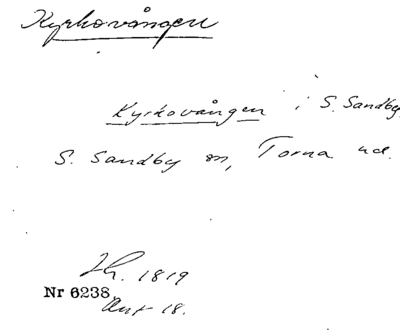 Kyrkovången
Kyrkovången i S. Sandby
S. Sandby sn, Torna hd.
Lh. 1819
Nr 6238
Akt 18.